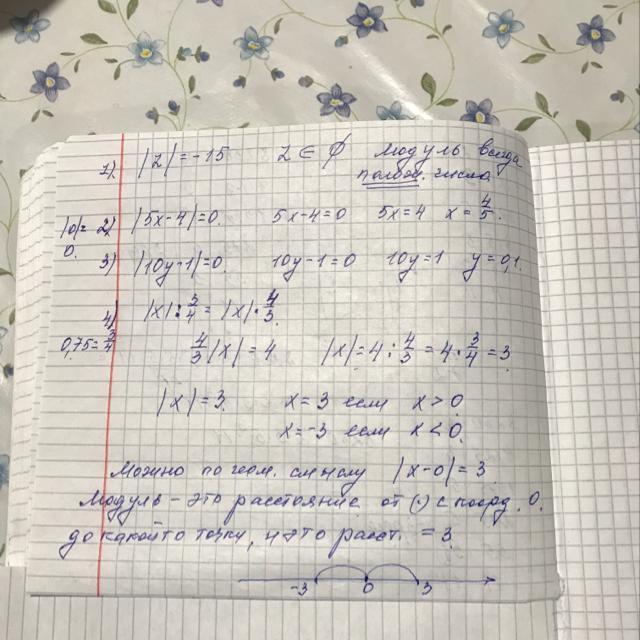 1) |Z| = -15 Z ∈ ∅ Модуль всегда
полож. число
|0|= 2) |5x-4|=0. 5x-4=0 5x=4 x=4/5.
0.
3) |10y-1|=0. 10y-1=0 10y=1 y=0,1.
4) |x|:3/4 = |x|·4/3.
0,75=3/4 4/3|x|=4 |x|=4:4/3=4·3/4=3
|x|=3. x=3 если x>0.
x=-3 если x<0.
Можно по геом. смыслу |x-0|=3.
Модуль - это расстояние от (·) с коорд. 0.
до какой то точки, и это расст. = 3.
-3 0 3